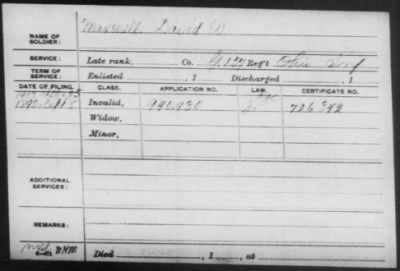 NAME OF SOLDIER: Maxwell David M
SERVICE: Late rank, Co. G 127 Reg't Ohio Inf
TERM OF SERVICE: Enlisted , 1 Discharged , 1
DATE OF FILING. CLASS. APPLICATION NO. LAW. CERTIFICATE NO.
1890 Sept 8 Invalid, 940.930 726342
Widow,
Minor,
ADDITIONAL SERVICES:
REMARKS:
Died , 1 , at